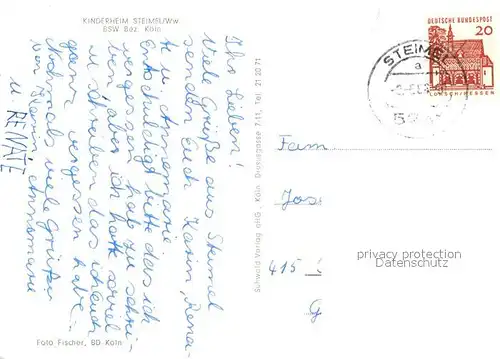 KINDERHEIM STEIMEL/Ww.
BSW Bez. Köln
Ihr Lieben!
Viele Grüße aus Steimel
senden Euch Karin, Rena-
te u. Annemarie
Entschuldigt bitte das ich
vergessen hab zu schrei-
ben aber ich hatte soviel
zu schreiben das ich euch
ganz vergessen habe.
Nochmals viele Grüße
von Karin, Annemarie
u. RENATE
Foto Fischer, BD Köln
Schwald-Verlag oHG · Köln Drususgasse 7-11, Tel. 21 20 71
DEUTSCHE BUNDESPOST
20
LORSCH/HESSEN
STEIMEL
a
Fam
Jos
415
privacy protection
Datenschutz